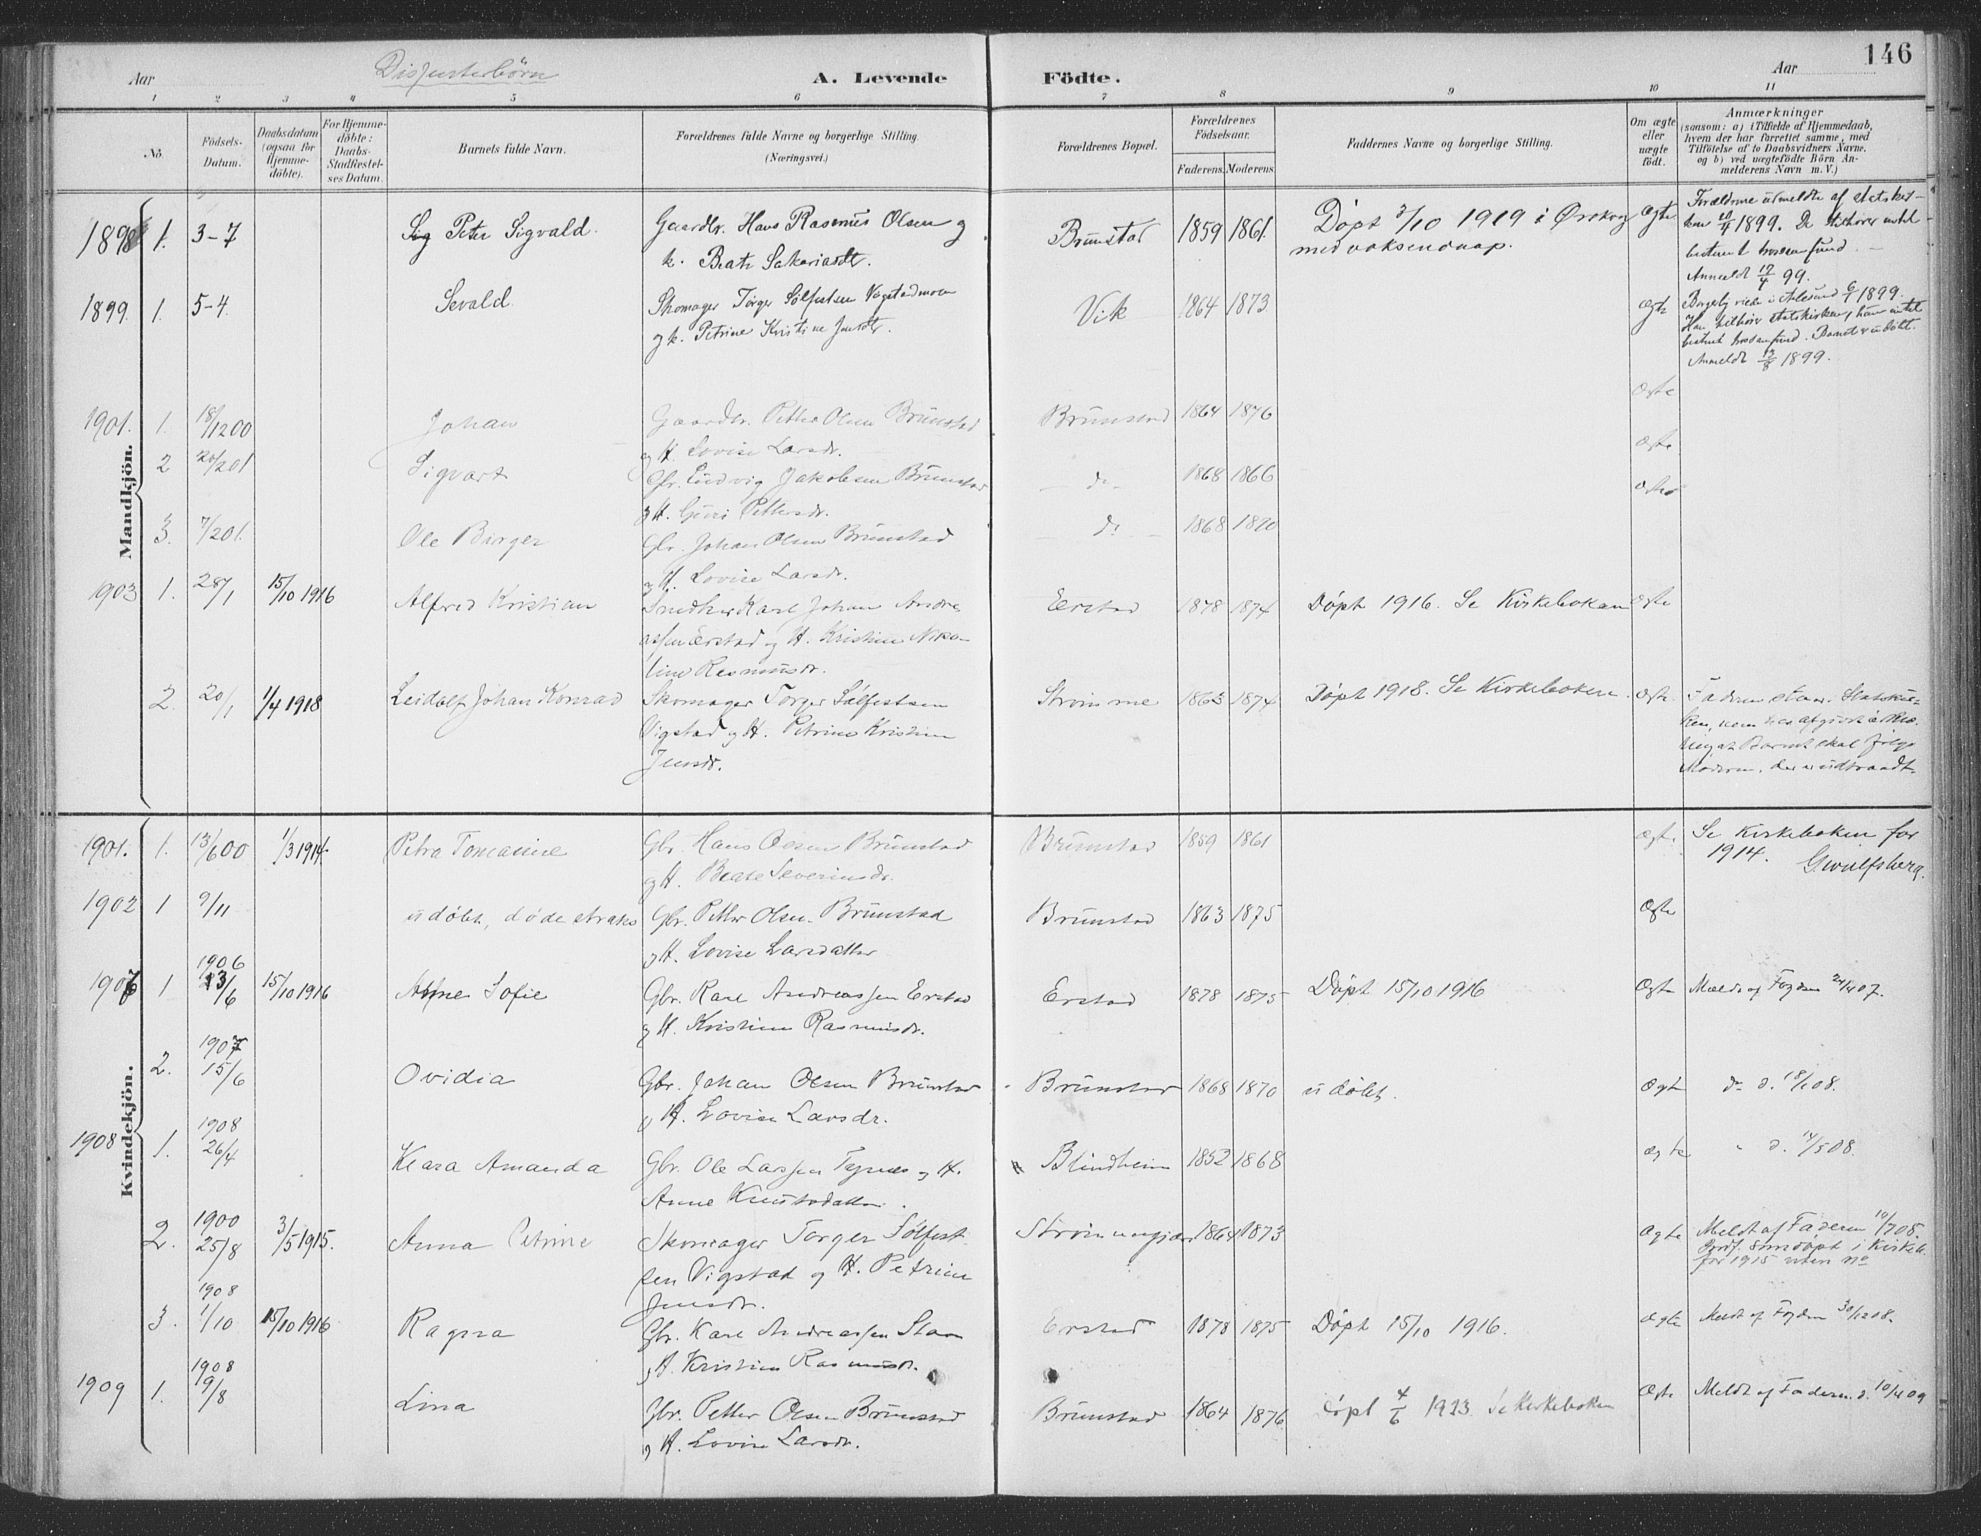 146
Aar
Dissenterbörn
A. Levende Födte.
Aar
1 2 3 4 5 6 7 8 9 10 11
No.
Födsels-Datum.
Daabsdatum (ogsaa for Hjemme-döbte).
For Hjemme-döbte: Daabs-Stadfæstel-ses Datum.
Barnets fulde Navn.
Forældrenes fulde Navne og borgerlige Stilling. (Næringsvei.)
Forældrenes Bopæl.
Forældrenes Födselsaar.
Faderens. Moderens.
Faddernes Navne og borgerlige Stilling.
Om ægte eller uægte födt.
Anmærkninger
(saasom: a) i Tilfælde af Hjemmedaab,
hvem der har forrettet samme, med
Tilföielse af to Daabsvidners Navne.
og b) ved uægtefödte Börn An-
melderens Navn m. V.)
Mandkjön.
1898 1. 3-7 Peter Sigvald. Gaardbr. Hans Rasmus Olsen og Brunstad 1859 1861. Döpt 3/10 1919 i Ørskog Ægte Forældrene udmeldte af statskir-
k. Beate Sakariasdtr. med voksendaap. ken 10/4 1899. De tilhører intet
bestemt trossamfund.
Anmeldt 12/4 99.
1899 1. 5-4 Sevald. Skomager Torger Sølfestsen Vik 1864 1873 Ægte
og k. Petrine Kristine Jensdtr. Han tilhør statskirken, hun intet
bestemt trossamfund. Barnet er udöbt.
Anmeldt 12/8 1899.
1901. 1. 18/12 00 Johan Gaardbr. Petter Olsen Brunstad Brunstad 1864 1876 Ægte
og H. Lovise Larsdr.
2 20/2 01 Sigvart Gbr. Ludvig Jakobsen Brunstad do 1868 1866 Ægte
og H. Guri Pettersdr.
3. 7/2 01. Ole Birger Gbr. Johan Olsen Brunstad do 1868 1870 Ægte
og H. Lovise Larsdr.
1903 1. 28/1 15/10 1916 Alfred Kristian Snedker Karl Johan Andre- Erstad 1878 1874 Døpt 1916. Se Kirkeboken Ægte
assen Erstad og H. Kristine Niko-
line Rasmusdr.
2. 20/1 1/4 1918 Leidolf Johan Konrad Skomager Torger Sølfestsen Strømme 1863 1874 Døpt 1918. Se Kirkeboken. Ægte Faderen staar i Statskir-
Vigstad og H. Petrine Kristine ken, men har afgivet
Jensdr. Barnet skal følge
Moderen, der er udtraadt.
Kvindekjön.
1901. 1. 13/6 00 1/3 1914 Petra Tomasine Gbr. Hans Olsen Brunstad Brunstad 1859 1861 Ægte Se Kirkeboken for
og H. Beate Severinsdr. 1914. Gwulfsberg.
1902 1 9/11 udöbt, døde straks Gbr. Petter Olsen Brunstad Brunstad 1863 1875 Ægte
og H. Lovise Larsdatter
1907 1 1906 13/6 15/10 1916 Anne Sofie Gbr. Karl Andreassen Erstad Erstad 1878 1875 Døpt 15/10 1916 Ægte Meldt af Fogden 24/4 07.
og H. Kristine Rasmusdr.
2. 1907 15/6 Ovidia Gbr. Johan Olsen Brunstad Brunstad 1868 1870 udöbt. Ægte do d. 18/1 08.
og H. Lovise Larsdr.
1908 1. 1908 26/4 Klara Amanda Gbr. Ole Larssen Tynes og H. Blindheim 1852 1868 Ægte " d. 14/5 08.
Anne Knutsdatter.
2. 1900 25/8 3/5 1915. Anna Petrine Skomager Torger Sølfest- 1864 1873 Ægte Meldt af Faderen 10/7 08.
sen Vigstad og H. Petrine Indf. som døpt i Kirkeb.
Jensdr. for 1915 uten No
3. 1908 1/10 15/10 1916 Ragna Gbr. Karl Andreassen Erstad 1878 1875 Døpt 15/10 1916. Ægte Meldt af Fogden 30/12 08.
og H. Kristine Rasmusdr.
1909 1. 1908 9/8 Lina Gbr. Petter Olsen Brunstad Brunstad 1864 1876 Døpt 4/6 1923 Se Kirkeboken Ægte Meldt af Faderen d. 10/4 09
og H. Lovise Larsdr.